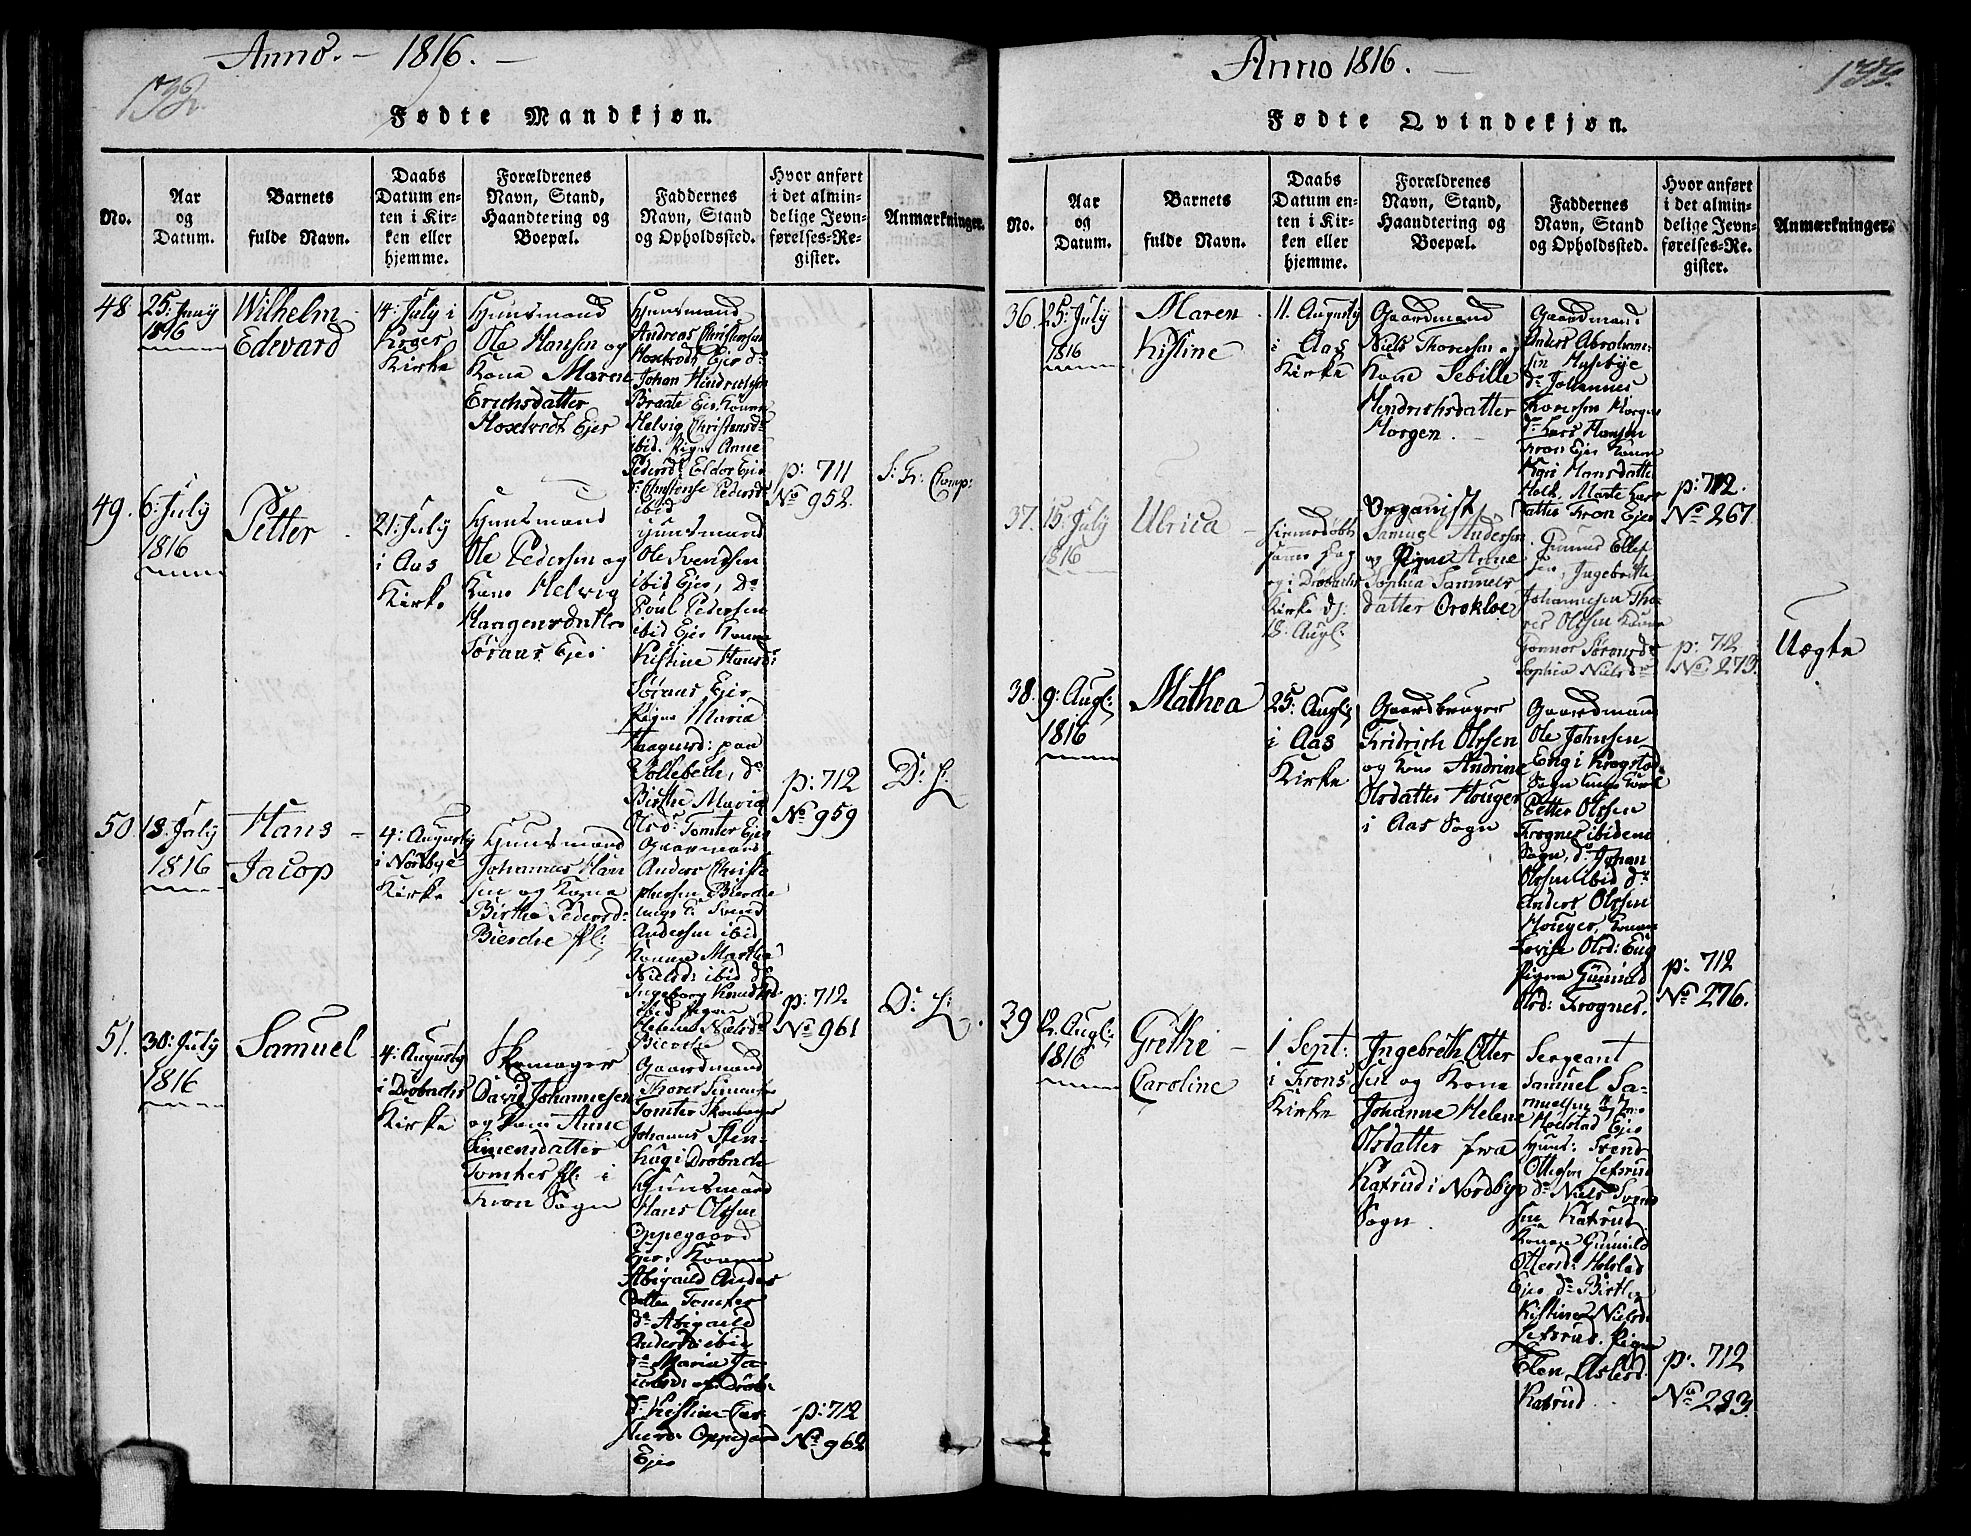 Anno. - 1816. -
132.
Fødte Mandkjøn.
No.
Aar
og
Datum.
Barnets
fulde Navn.
Daabs
Datum en-
ten i Kir-
ken eller
hjemme.
Forældrenes
Navn, Stand,
Haandtering og
Boepæl.
Faddernes
Navn, Stand
og Opholdssted.
Hvor anført
i det almin-
delige Jevn-
førelses-Re-
gister.
Anmærkninger.
48
25: Juny
1816
Wilhelm
Edevard
14: July i
Kroger
Kirke
Huusmand
Ole Hansen og
Kone Maren
Erichsdatter
Hoxtvedt Ejer
Huusmand
Andreas Christensen
Hoxtvedt Ejer Do
Johan Hindrichsen
Braate Ejer, Konen
Helvig Christensdr
ibid. Pigen Anne
Pedersdr Eldor Ejer
Do Christense Pedersdr
ibid
p: 711
No 952.
49.
6: July
1816
Petter
21: July
i Aas
Kirke
Huusmand
Ole Pedersen og
Kone Helvig
Haagensdatter
Søraas Ejer
Huusmand
Ole Svendsen
ibid Ejer, Do
Poul Pedersen
ibid Ejer Konen
Kistine Hansdr
Søraas Ejer
Pigen Maria
Haagensd: paa
Vollebech, do
Birthe Maria
Olsdr Tomter Ejer
p: 712
No 959
50
13: July
1816
Hans
Jacop
4: Augusty
i Nordbye
Kirke
Huusmand
Johannes Han
sen og Kone
Birthe Pedersd:
Bierche Pl:
Gaarmand
Anders Christ
phersen Bierche
Andersen ibid
Konen Marthe
Nielsd: ibid do
Ingeborg Knudsd.
ibid Pigen
Helene Nielsdr
Bierche
p: 712
No 961
51.
30: July
1816
Samuel
4: Augusty
i Drøbachs
Kirke
Skomager
David Johannesen
og Kone Anne
Simensdatter
Tomter Pl: i
Kron Sogn
Gaardmand
Thorer Simensen
Tomter Skomager
Johannes Sten-
hug i Drøbach
Huusmand
Hans Olsen
Oppegaard
Ejer: Konen
Abigaild Anders
datter Tomter
do Abigaild
Andersdr ibid
do Maria Ja-
do Kistine
Oppegaard
Ejer
p: 712
No 962
Anno 1816.
133.
Fødte Qvindekjøn.
No.
Aar
og
Datum.
Barnets
fulde Navn.
Daabs
Datum en-
ten i Kir-
ken eller
hjemme.
Forældrenes
Navn, Stand,
Haandtering og
Boepæl.
Faddernes
Navn, Stand
og Opholdssted.
Hvor anført
i det almin-
delige Jevn-
førelses-Re-
gister.
Anmærkninger.
36.
25: July
1816
Maren
Kistine
11. Augusty
i Aas
Kirke
Gaardmand
Niels Thoresen og
Kone Sebille
Hendrichsdatter
Horgen.
Gaardmand
Anders Abraham-
sen Husebye
do Johannes
Thoresen Horgen
do Lars Hansen
Kron Ejer Konen
Kari Hansdatter
Holt. Marte Lars
datter Kron Ejer
p: 712.
No 267.
37.
15. July
1816
Ulrica
hiemmedøbt
samme Dag
og i Drøbachs
Kirke d:
18. Augl:
Organist
Samuel Andersen
og Pigen Anne
Sophia Samuels
datter Orokloe
Gunned Ellef
sen, Ingebreth
Johannesen Tho-
res Olsen Konen
Gonnor Sørensdr
Sophia Nielsdr
p: 712
No 273.
Uægte
38.
9: Augl:
1816
Mathea
25: Augl:
i Aas
Kirke
Gaardbruger
Fridrich Olssen
og Kone Andrine
Olsdatter Houger
i Aas Sogn
Gaardmand
Ole Johnsen
Eng i Krogstad
Sogn
Petter Olssen
Frogner ibidem
Sogn, do Johan
Olssen ibid do
Anders Olssen
Houger, Konen
Lovise Olsd: Eng
Pigen Gunnild
Olsd: Frogner.
p: 712
No 276.
39
12. Augl:
1816
Grethe
Caroline
1 Sept:
i Krons
Kirke
Ingebreth Otter
sen og Kone
Johanne Helene
Olsdatter fra
Katrud i Nordbye
Sogn
Sergeant
Samuel Sa-
muelsen
Holstad Ejer
Huusm: Svend
Ottersen Lexrud
do Niels Svend
sen Katrud
Konen Gunnild
Ottersd: Holstad
Ejer do Birthe
Kistine Nielsd.
Lexrud. Pigen
Elen Olsd.
Katrud
p: 712
No 283.